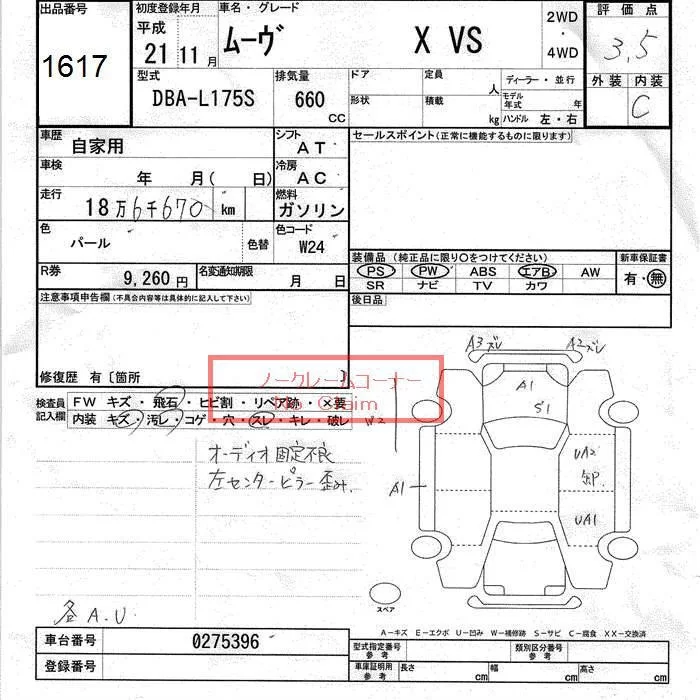 出品番号
1617
初度登録年月
平成
21 11 月
車名・グレード
ムーヴ X VS
2WD
・
4WD
評価点
3.5
外装 内装
C
型式
DBA-L175S
排気量
660
CC
ドア
定員
人
形状
積載
kg
ディーラー・並行
モデル
年式 年
ハンドル 左・右
車歴
自家用
シフト
AT
セールスポイント(正常に機能するものに限ります)
車検
年 月( 日)
冷房
AC
走行
18万6千670 km
燃料
ガソリン
色
パール
色替
色コード
W24
装備品(純正品に限り○をつけてください)
新車保証書
PS PW ABS エアB AW
SR ナビ TV カワ
有・無
R券
9,260 円
名変通知期限
月 日
後日品
注意事項申告欄(不具合内容等は具体的に記入して下さい)
修復歴 有〔箇所 〕
ノークレームコーナー
No Claim
検査員
記入欄
FW キズ・飛石・ヒビ割・リペア跡・×要
内装・キズ・汚レ・コゲ・穴・スレ・キレ・破レ
W2
オーディオ固定不良
左センターピラー歪み
A3ズレ
A2ズレ
A1
S1
UA2
A1
UA1
スペア
各A.U
A−キズ E−エクボ U−凹み W−補修跡 S−サビ C−腐食 XX−交換済
車台番号
0275396
登録番号
型式指定番号
参考
類別区分番号
参考
車庫証明用
参考
長さ cm
幅 cm
高さ cm